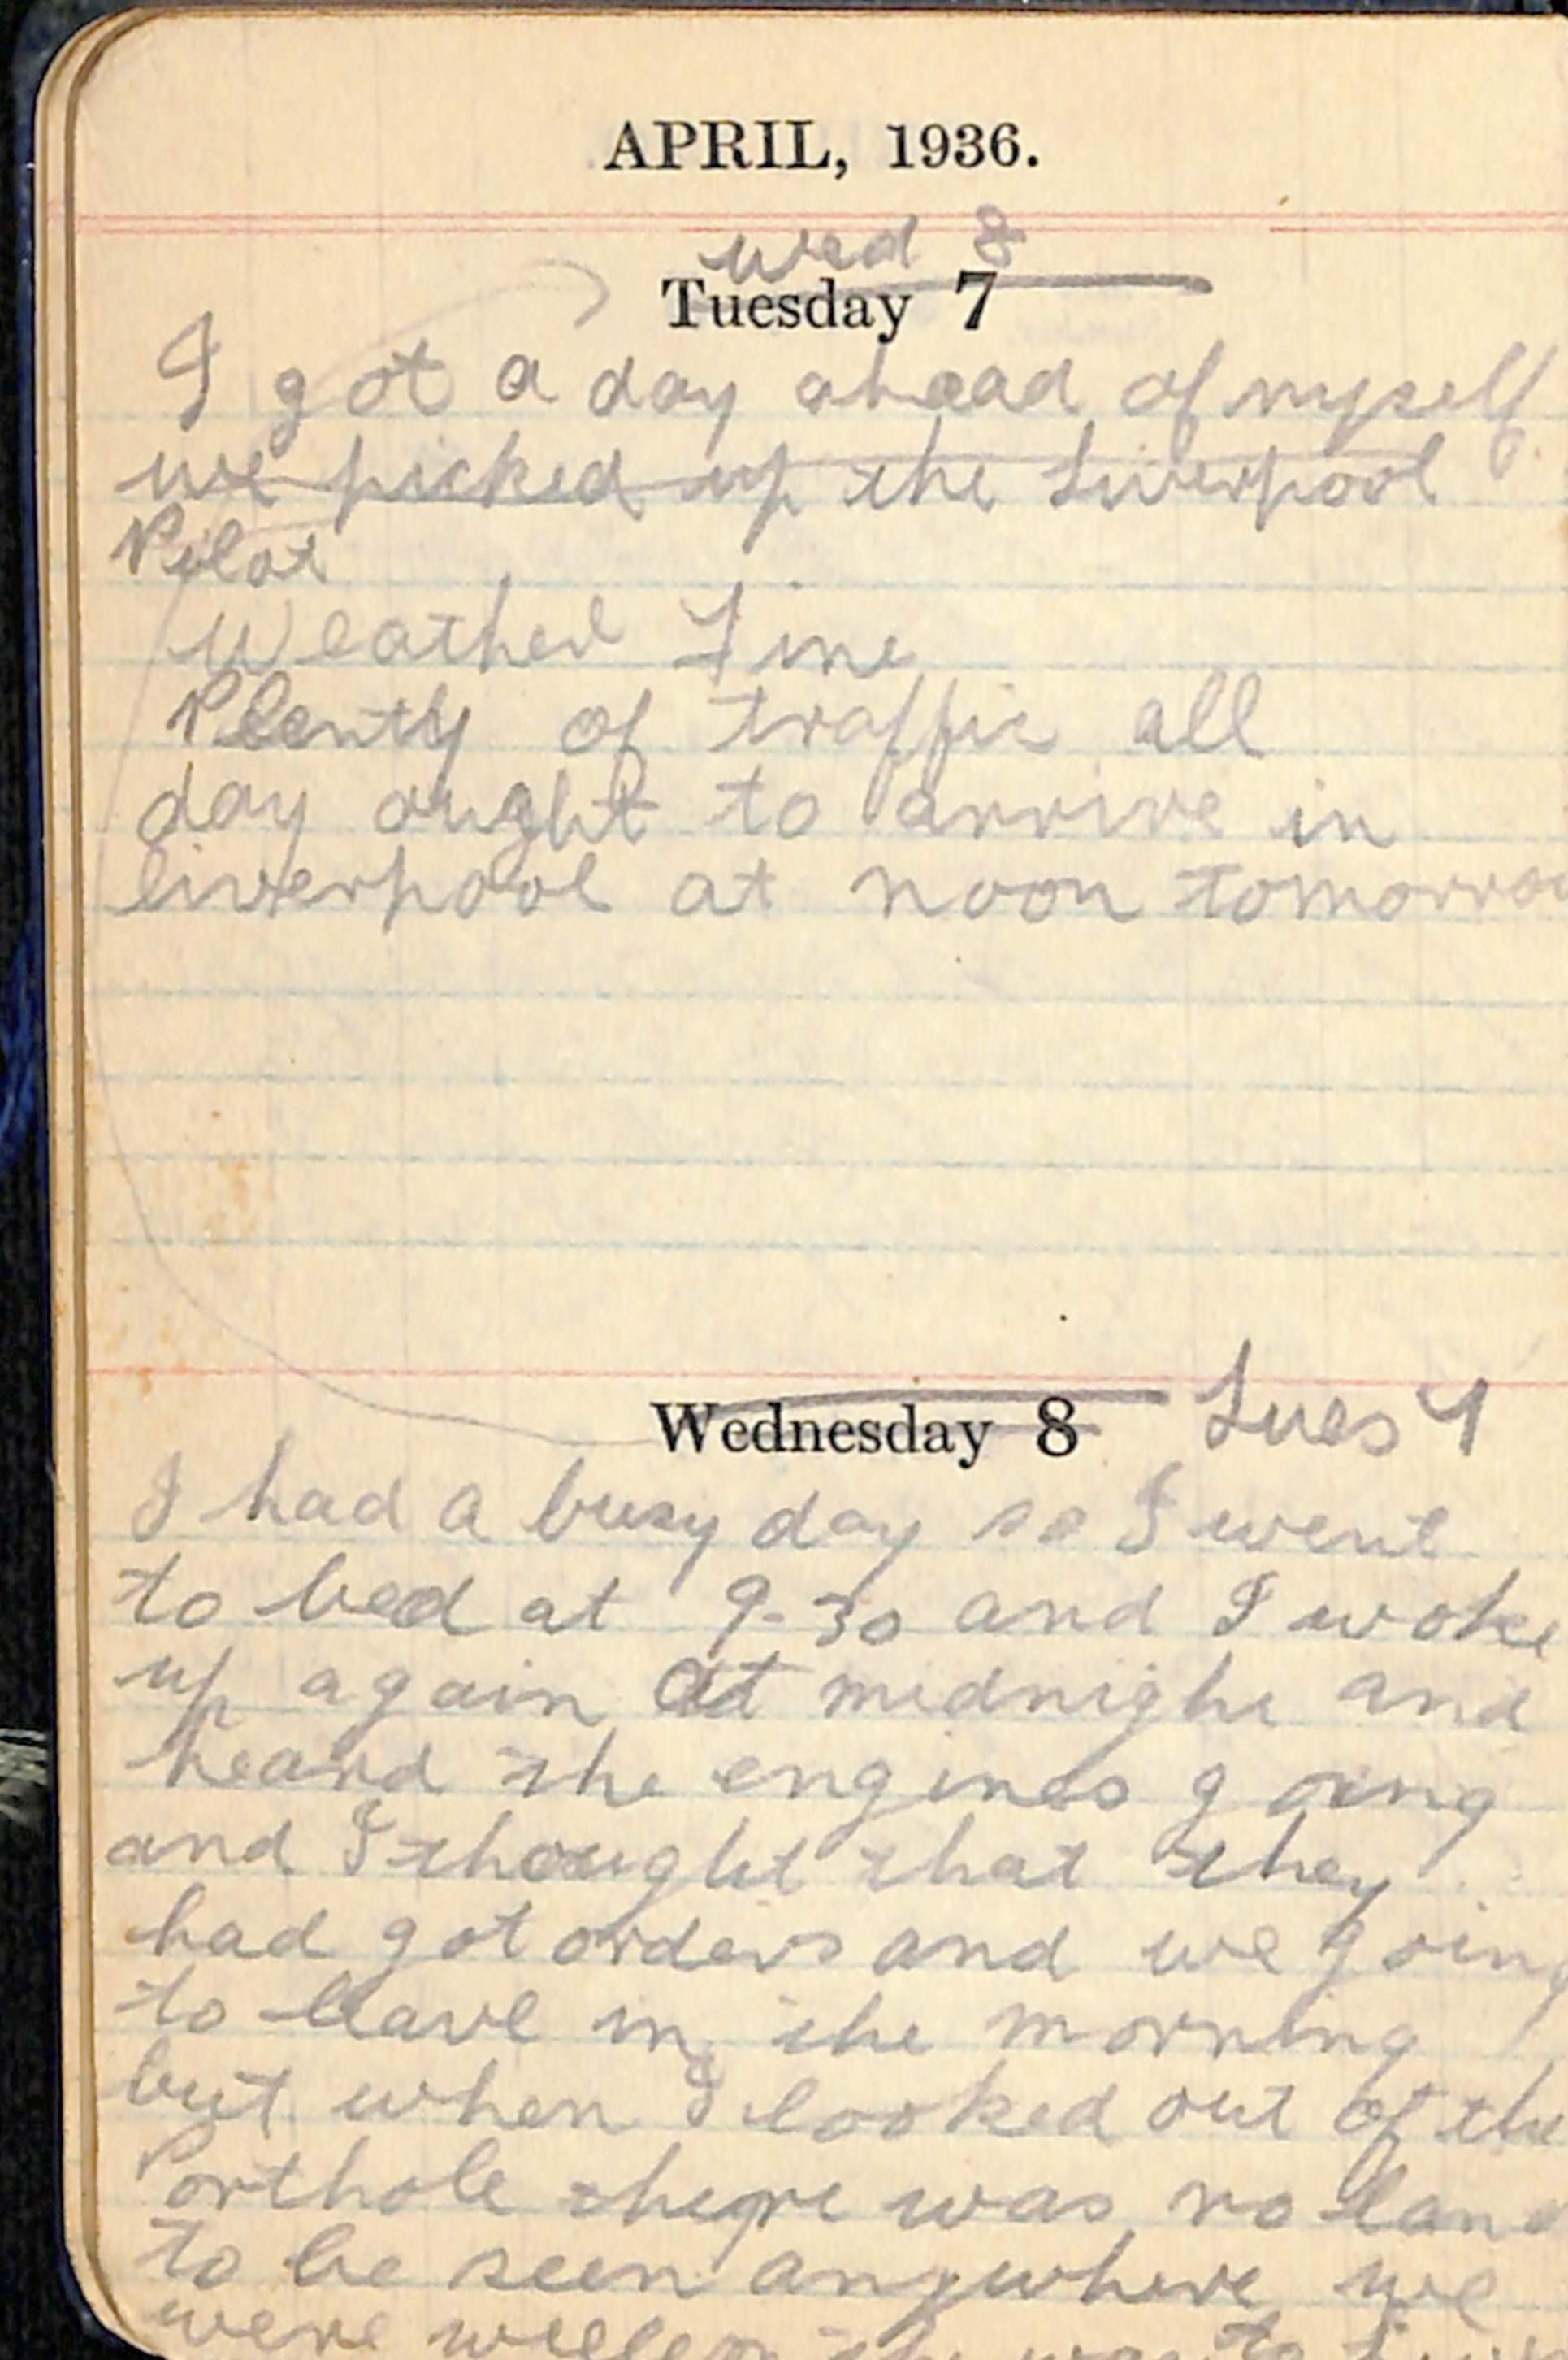 APRIL, 1936.
Wed 8
Tuesday 7
I got a day ahead of myself
we picked up the Liverpool
Pilot
Weather Fine
Plenty of traffic all
day ought to arrive in
liverpool at noon tomorrow
Wednesday 8 Tues 7
I had a busy day so I went
to bed at 9-30 and I woke
up again at midnight and
heard the engines going
and I thought that they
had got orders and we going
to leave in the morning
but when I looked out of the
Porthole there was no land
to be seen anywhere we
were well on the way to